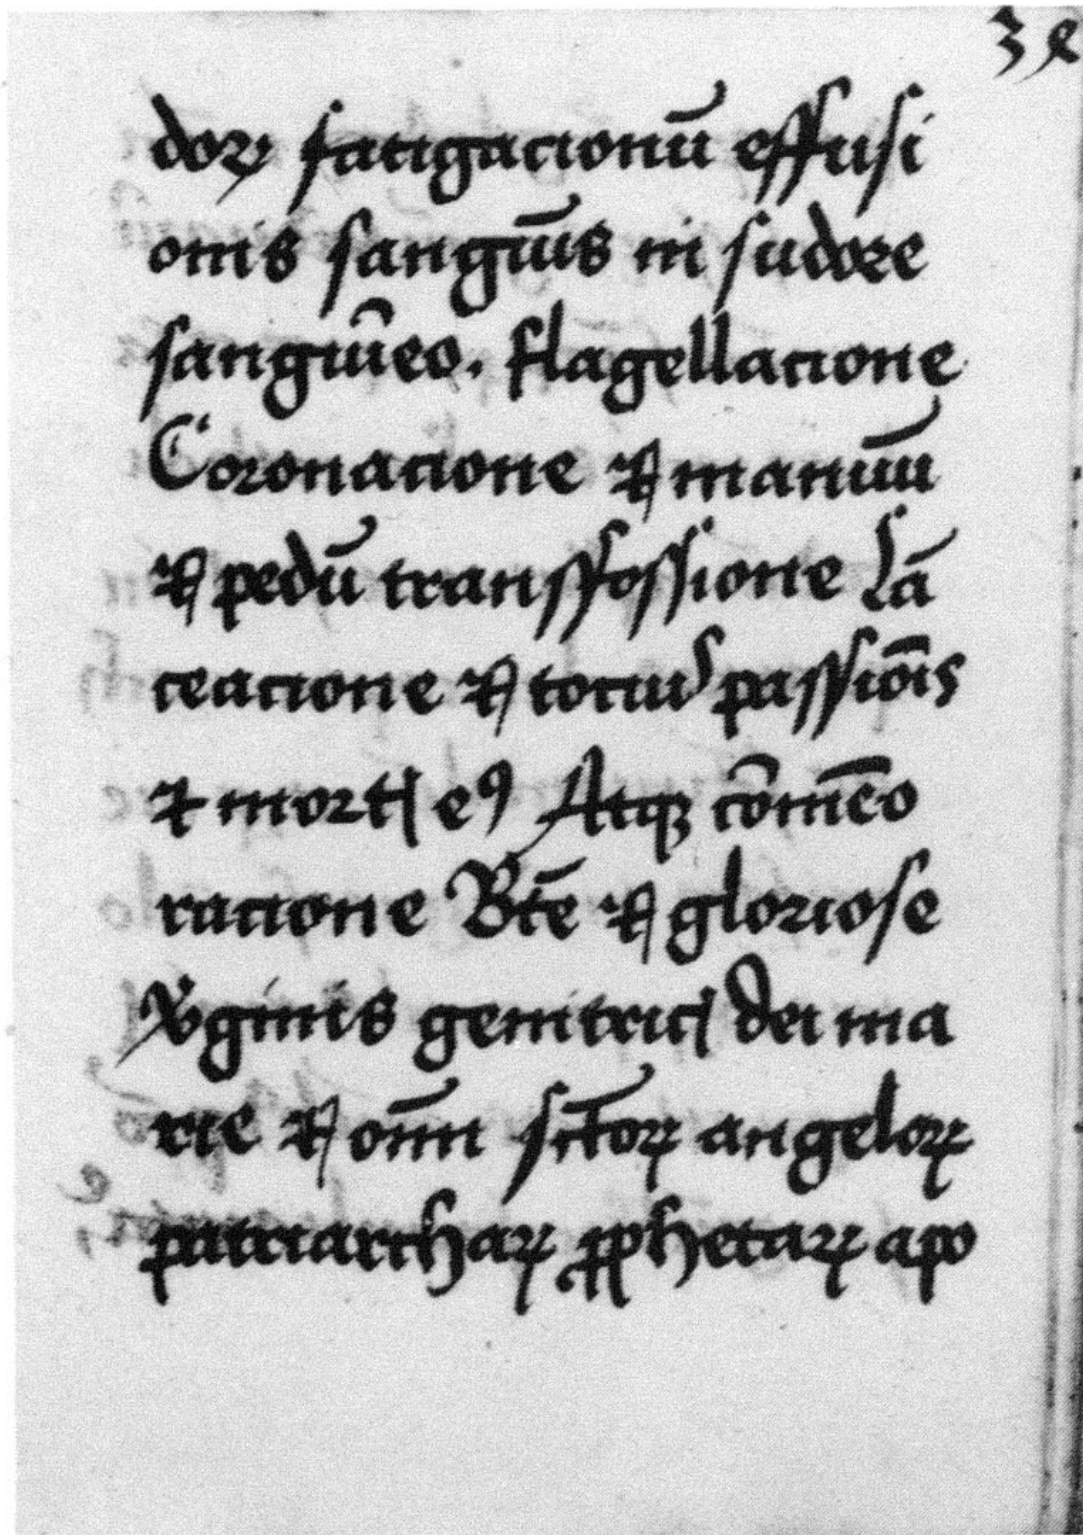 34
dorꝝ fatigacionū effusi
onis sanguīs in sudore
sanguīeo. flagellacione
Coronacione ⁊ manuū
⁊ pedū transfossione Lā
ceacione ⁊ tocius passiōis
⁊ mortꝭ eꝰ Atqꝫ cōmēo
racione Btē ⁊ gloriose
v̇ginis genitricꝭ dei ma
rie ⁊ om̄i sct̄oꝝ angeloꝝ
patriarchaꝝ ꝓphetaꝝ apo